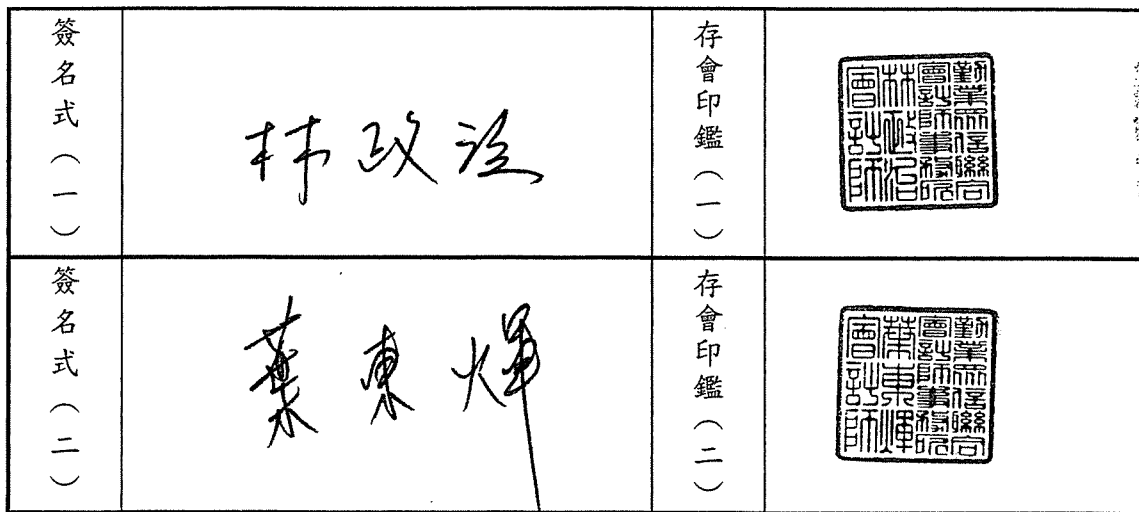 簽名式(一)
林政治
存會印鑑(一)
勤業眾信聯合
會計師事務所
林政治
會計師
簽名式(二)
葉東煇
存會印鑑(二)
勤業眾信聯合
會計師事務所
葉東煇
會計師